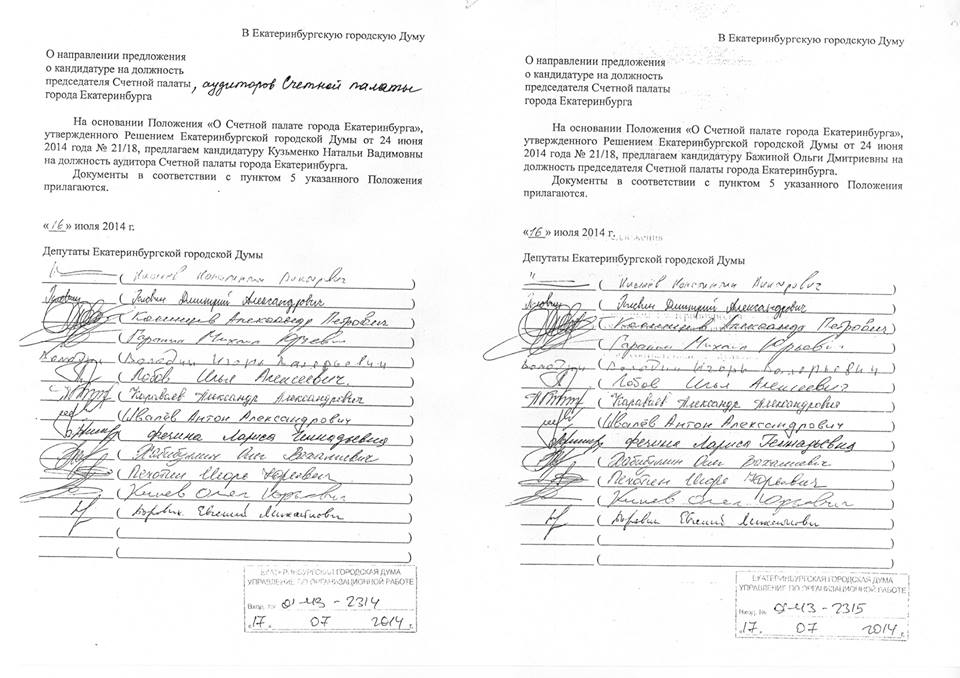 В Екатеринбургскую городскую Думу
О направлении предложения
о кандидатуре на должность
председателя Счетной палаты, аудиторов Счетной палаты
города Екатеринбурга
На основании Положения «О Счетной палате города Екатеринбурга»,
утвержденного Решением Екатеринбургской городской Думы от 24 июня
2014 года № 21/18, предлагаем кандидатуру Кузьменко Натальи Вадимовны
на должность аудитора Счетной палаты города Екатеринбурга.
Документы в соответствии с пунктом 5 указанного Положения
прилагаются.
«16» июля 2014 г.
Депутаты Екатеринбургской городской Думы
( Константин Викторович )
( Дмитрий Александрович )
( Александр Петрович )
( Гаранин Михаил Юрьевич )
( Володин Игорь Валерьевич )
( Лобов Илья Алексеевич. )
( Караваев Александр Александрович )
( Швалёв Антон Александрович )
( Фечина Лариса Геннадьевна )
( Хабибуллин Олег )
( Пехотин Игорь Юрьевич )
( Кинёв Олег Юрьевич )
( Боровик Евгений Михайлович )
( )
( )
ЕКАТЕРИНБУРГСКАЯ ГОРОДСКАЯ ДУМА
УПРАВЛЕНИЕ ПО ОРГАНИЗАЦИОННОЙ РАБОТЕ
Вход. № 01-43 - 2314
«17» 07 2014 г.
В Екатеринбургскую городскую Думу
О направлении предложения
о кандидатуре на должность
председателя Счетной палаты
города Екатеринбурга
На основании Положения «О Счетной палате города Екатеринбурга»,
утвержденного Решением Екатеринбургской городской Думы от 24 июня
2014 года № 21/18, предлагаем кандидатуру Бажиной Ольги Дмитриевны на
должность председателя Счетной палаты города Екатеринбурга.
Документы в соответствии с пунктом 5 указанного Положения
прилагаются.
«16» июля 2014 г.
Депутаты Екатеринбургской городской Думы
( Константин Викторович )
( Дмитрий Александрович )
( Александр Петрович )
( Гаранин Михаил Юрьевич )
( Володин Игорь Валерьевич )
( Лобов Илья Алексеевич )
( Караваев Александр Александрович )
( Швалёв Антон Александрович )
( Фечина Лариса Геннадьевна )
( Хабибуллин Олег )
( Пехотин Игорь Юрьевич )
( Кинёв Олег Юрьевич )
( Боровик Евгений Михайлович )
( )
( )
ЕКАТЕРИНБУРГСКАЯ ГОРОДСКАЯ ДУМА
УПРАВЛЕНИЕ ПО ОРГАНИЗАЦИОННОЙ РАБОТЕ
Вход. № 01-43 - 2315
«17» 07 2014 г.